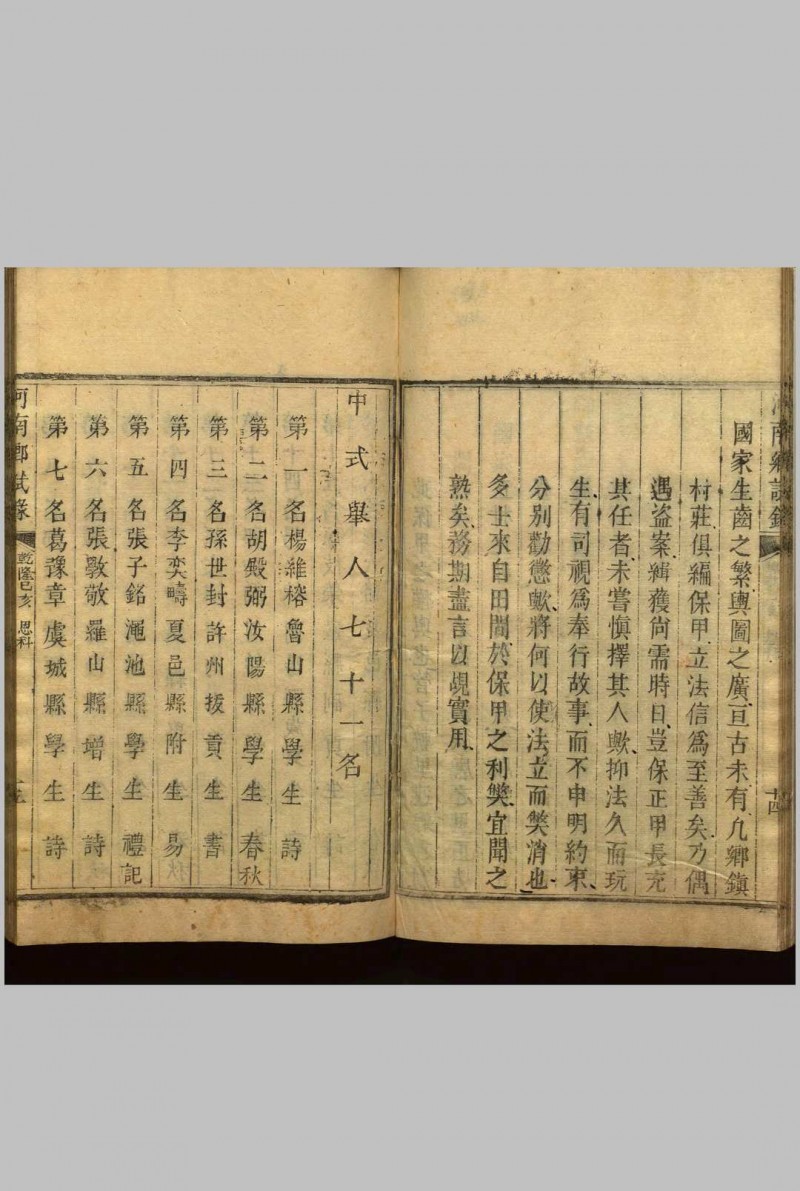 河南鄉試錄
十四
國家生齒之繁輿圖之廣亘古未有凡鄉鎮
村莊俱編保甲立法信爲至善矣乃偶
遇盜案緝獲尚需時日豈保正甲長充
其任者未嘗慎擇其人歟抑法久而玩
生有司視爲奉行故事而不申明約束
分别勸懲歟將何以使法立而獘消也
多士來自田間於保甲之利獘宜聞之
熟矣務期盡言以覘實用
中式舉人七十一名
第一名楊維榕魯山縣學生詩
第二名胡殿弼汝陽縣學生春秋
第三名孫世封許州拔貢生書
第四名李奕疇夏邑縣附生易
第五名張子銘澠池縣學生禮記
第六名張敦敬羅山縣增生詩
第七名葛豫章虞城縣學生詩
河南鄉試錄
乾隆己亥恩科
十五